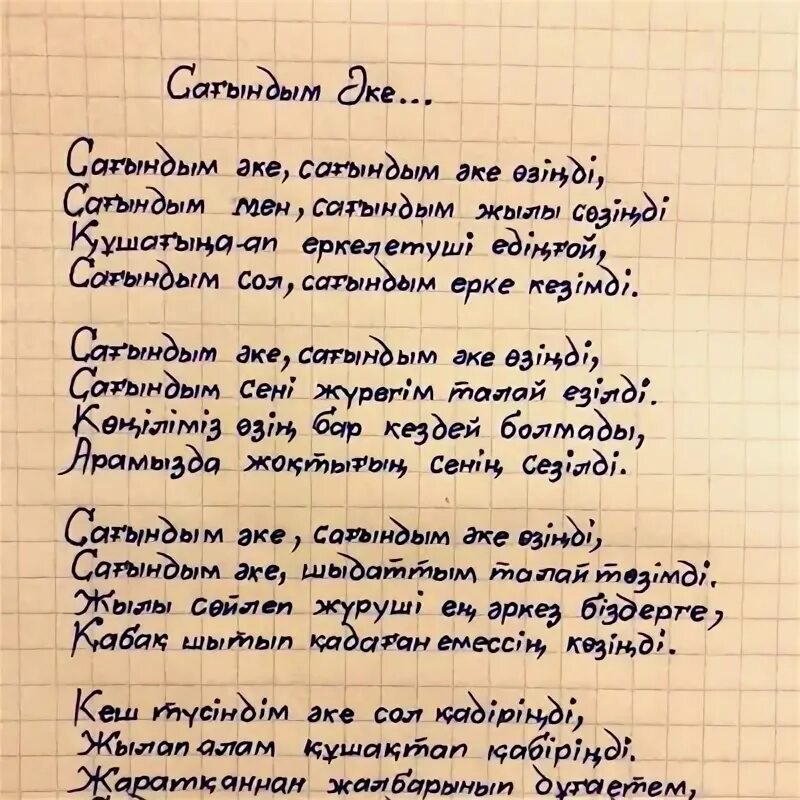 Сағындым Әке...
Сағындым әке, сағындым әке өзіңді,
Сағындым мен, сағындым жылы сөзіңді
Құшағыңа-ап еркелетуші едіңғой,
Сағындым сол, сағындым ерке кезімді.
Сағындым әке, сағындым әке өзіңді,
Сағындым сені жүрегім талай езілді.
Көңіліміз өзің бар кездей болмады,
Арамызда жоқтығың сенің сезілді.
Сағындым әке, сағындым әке өзіңді,
Сағындым әке, шыдаттым талай төзімді.
Жылы сөйлеп жүруші ең әркез біздерге,
Қабақ шытып қадаған емессің көзіңді.
Кеш түсіндім әке сол қадіріңді,
Жылап алам құшақтап қабіріңді.
Жаратқаннан жалбарынып дұғаетем,